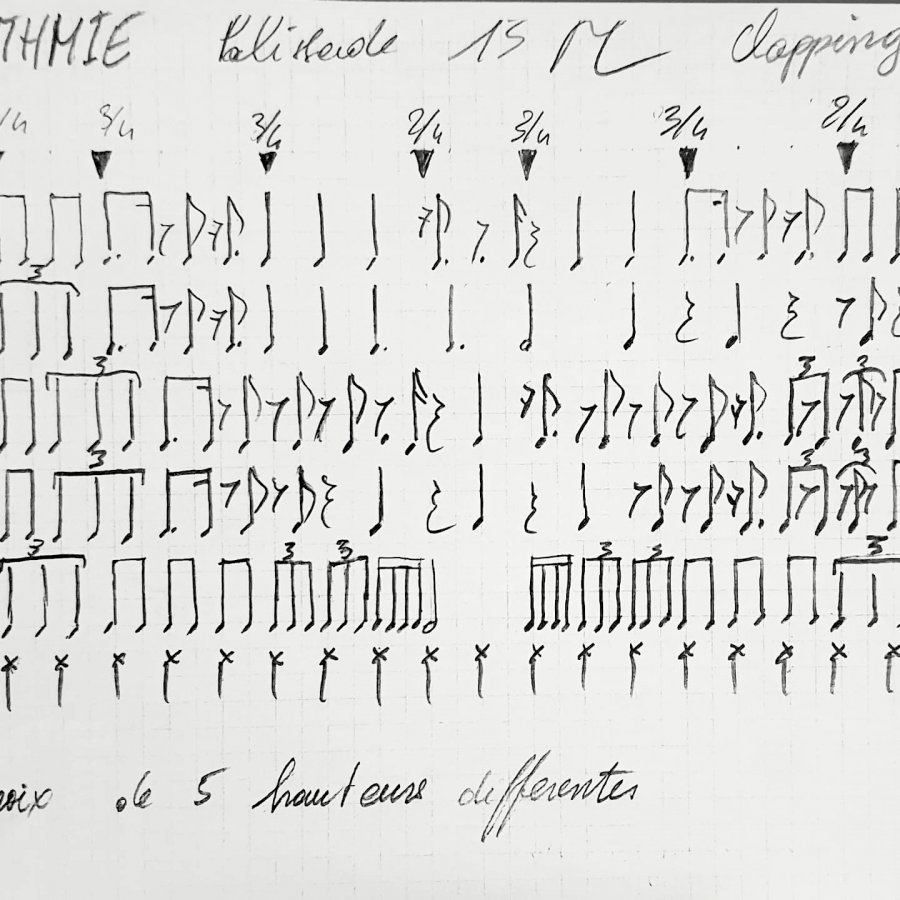 THMIE 15 Clapping
3/4 3/4 2/4 3/4 3/4 2/4
3
3
3 3 3
3 3 3 3
3
de 5 hauteurs differentes